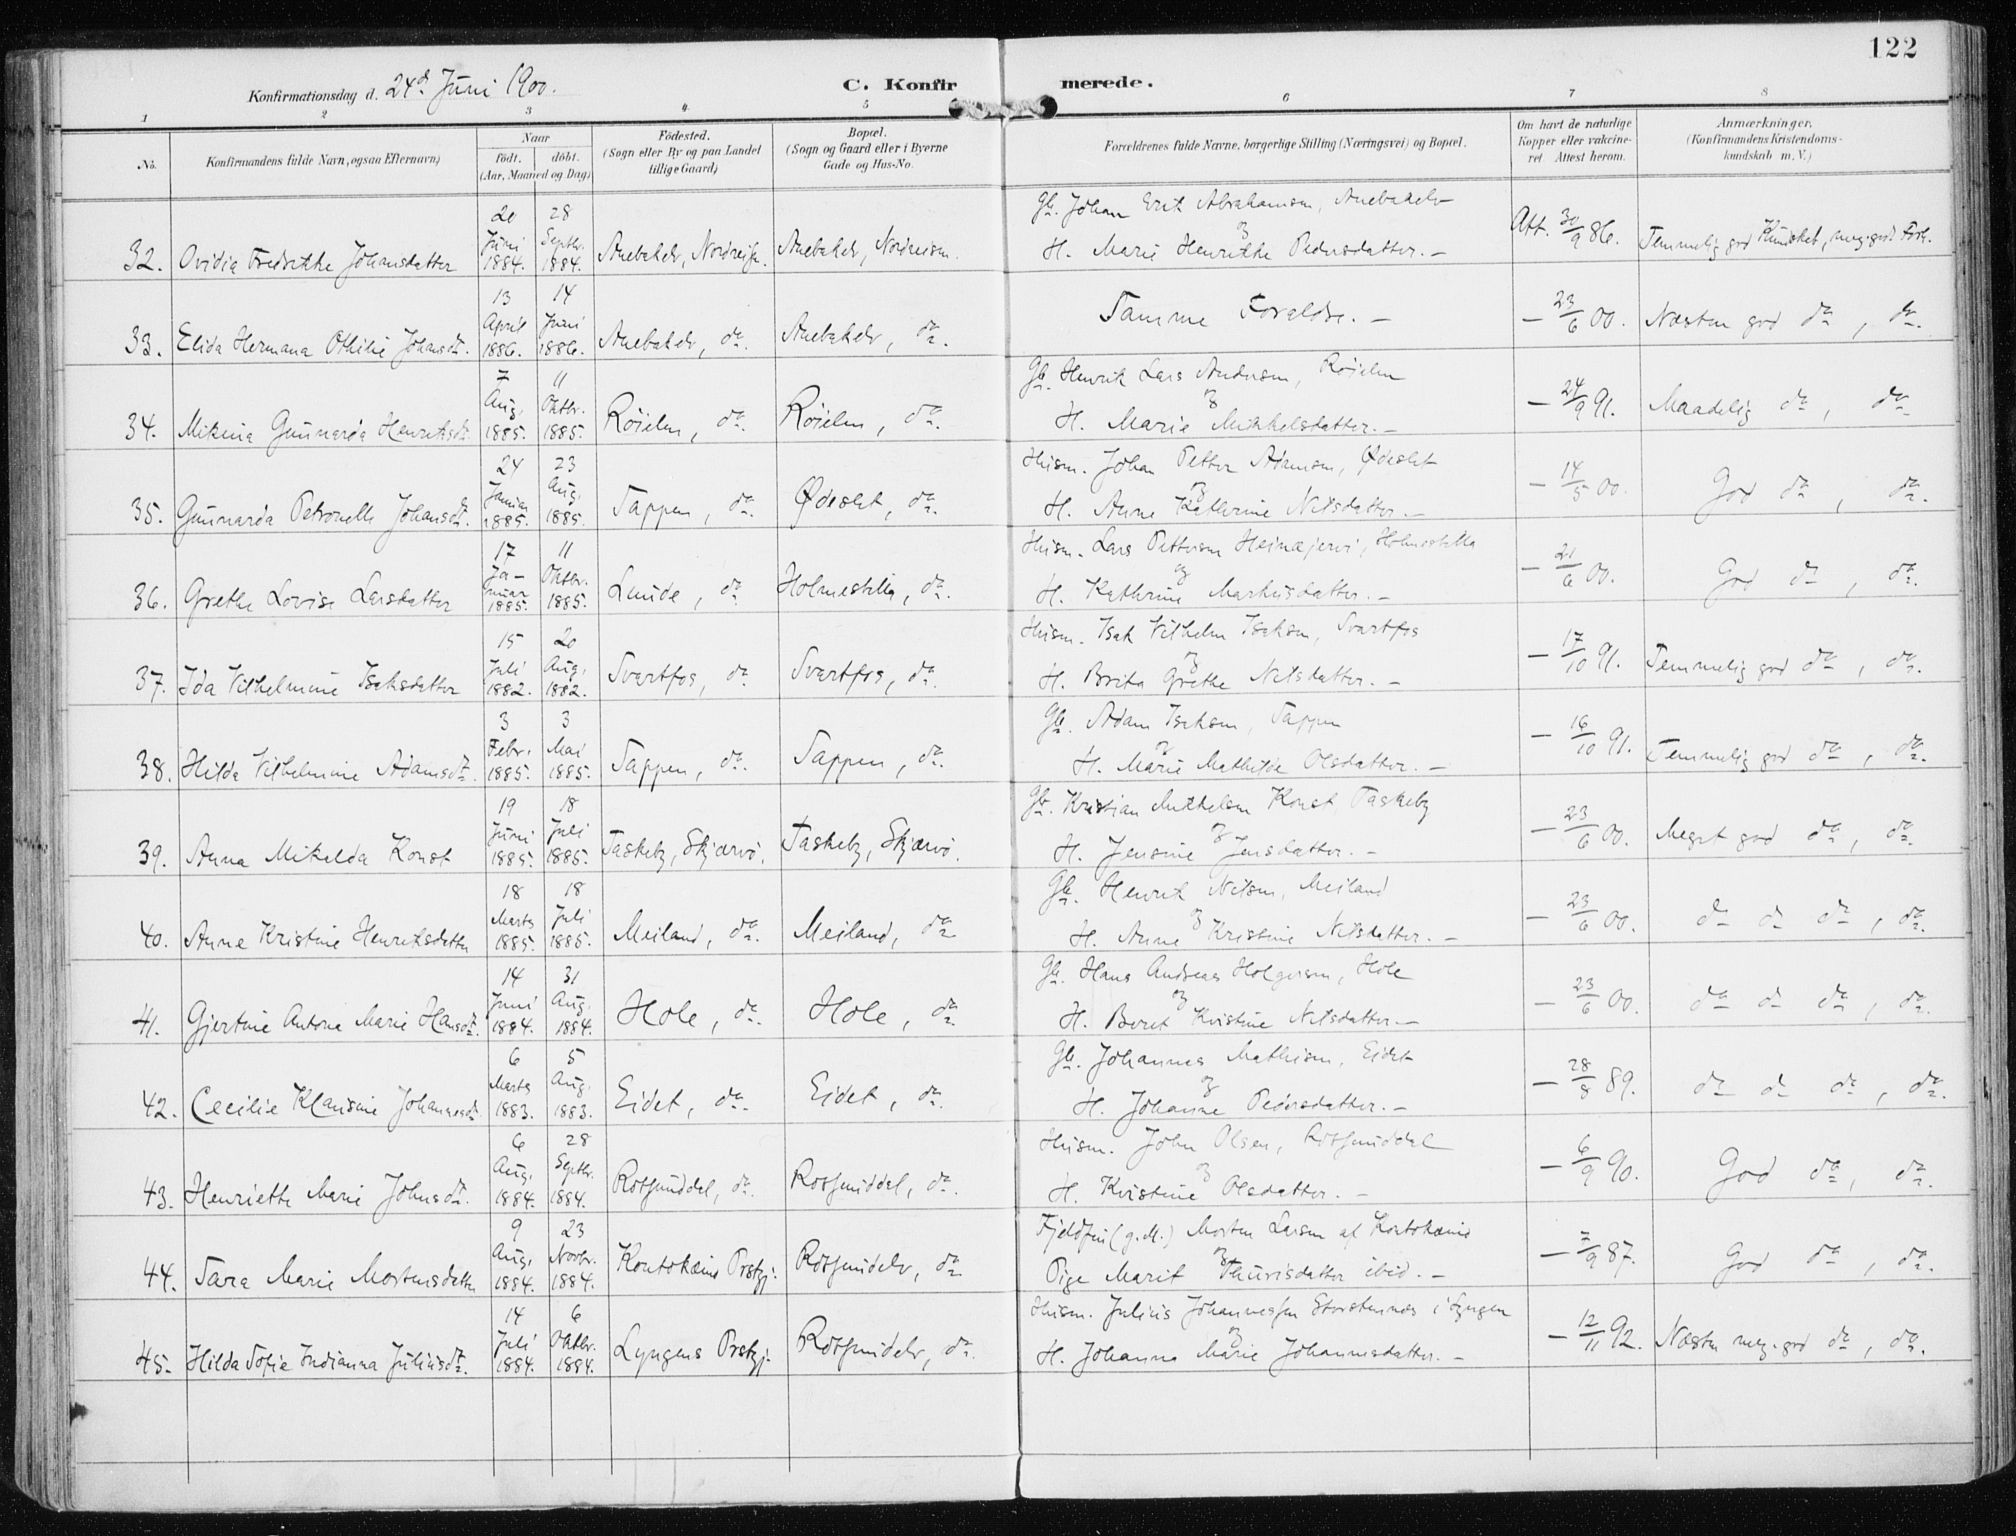 122
Konfirmationsdag d. 24d Juni 1900.
C. Konfirmerede.
1 2 3 4 5 6 7 8
No. Konfirmandens fulde Navn, ogsaa Efternavn) Naar født. døbt. (Aar, Maaned og Dag) Fødested. (Sogn eller By og paa Landet tillige Gaard) Bopæl. (Sogn og Gaard eller i Byerne Gade og Hus-No. Forældrenes fulde Navne, borgerlige Stilling (Næringsvei) og Bopæl. Om havt de naturlige Kopper eller vakcineret Attest herom. Anmærkninger. (Konfirmandens Kristendomskundskab m. V.)
32. Ovidia Fredrikke Johansdatter 20 Juni 1884. 28 Septbr. 1884. Nordreisen. Nordreisen. Gbr. Johan Erik Abrahamsen,
og H. Marie Henrikke Pedersdatter. — Att. 30/9 86. Temmelig god Kundskab, meg. god Forh.
33. Elida Hermana Othilie Johansdtr. 13 April 1886. 14 Juni 1886. do. do. Samme Forældre. — — 23/6 00. Næsten god do, do.
34. Mikina Gunnarda Henriksdtr. 7 Aug. 1885. 11 Oktbr. 1885. Røielen, do. Røielen, do. Gbr. Henrik Lars Andersen, Røielen
og H. Marie Mikkelsdatter. — — 24/9 91. Maadelig do, do.
35. Gunnarda Petronelle Johansdtr. 24 Januar 1885. 23 Aug. 1885. Sappen, do. Ødeslet, do. Husm. Johan Petter Adamsen, Ødeslet
og H. Anne Kathrine Nilsdatter. — — 14/5 00. God do, do.
36. Grethe Lovise Larsdatter 17 Januar 1885. 11 Oktbr. 1885. Lunde, do. Holmestilla, do. Husm. Lars Pettersen Heinæjervi, Holmestilla
og H. Kathrine Markusdatter. — — 21/6 00. God do, do.
37. Ida Vilhelmine Isaksdatter 15 Juli 1882. 20 Aug. 1882. Svartfos, do. Svartfos, do. Husm. Isak Vilhelm Isaksen, Svartfos
og H. Brita Grethe Nilsdatter. — — 17/10 91. Temmelig god do, do.
38. Hilda Vilhelmine Adamsdtr. 3 Febr. 1885. 3 Mai 1885. Sappen, do. Sappen, do. Gbr. Adam Isaksen, Sappen
og H. Marie Mathilde Olsdatter. — — 16/10 91. Temmelig god do, do.
39. Anna Mikalda Konst 19 Juni 1885. 18 Juli 1885. Taskeby, Skjærvø. Taskeby, Skjærvø. Gbr. Kristian Mikkelsen Konst Taskeby
og H. Jensine Jensdatter. — — 23/6 00. Meget god do, do.
40. Anne Kristine Henriksdatter 18 Marts 1885. 18 Juli 1885. Meiland, do. Meiland, do. Gbr. Henrik Nilsen, Meiland
og H. Anne Kristine Nilsdatter. — — 23/6 00. do do do, do.
41. Gjertine Antone Marie Hansdtr. 14 Juni 1884. 31 Aug. 1884. Hole, do. Hole, do. Gbr. Hans Andreas Holgersen, Hole
og H. Beret Kristine Nilsdatter. — — 23/6 00. do do do, do.
42. Cecilie Klausine Johannesdtr. 6 Marts 1883. 5 Aug. 1883. Eidet, do. Eidet, do. Gbr. Johannes Mathisen, Eidet
og H. Johanne Pedersdatter. — — 28/8 89. do do do, do.
43. Henriette Marie Johnsdtr. 6 Aug. 1884. 28 Septbr. 1884. Rotsunddal, do. Rotsunddal, do. Husm. John Olsen, Rotsunddal
og H. Kristine Olsdatter. — — 6/9 90. God do, do.
44. Sara Marie Mortensdatter 9 Aug. 1884. 23 Novbr. 1884. Koutokæino Prstgj. Rotsundelv, do. Fjeldfin (g. M.) Morten Larsen af Koutokæino
og Pige Marit Thurisdatter ibid. — — 7/9 87. God do, do.
45. Hilda Sofie Indianna Juliusdtr. 14 Juli 1884. 6 Oktbr. 1884. Lyngens Prstgj. Rotsundelv, do. Husm. Julius Johannessen Storstennes i Lyngen
og H. Johanna Marie Johannesdatter. — — 12/11 92. Næsten meg. god do, do.